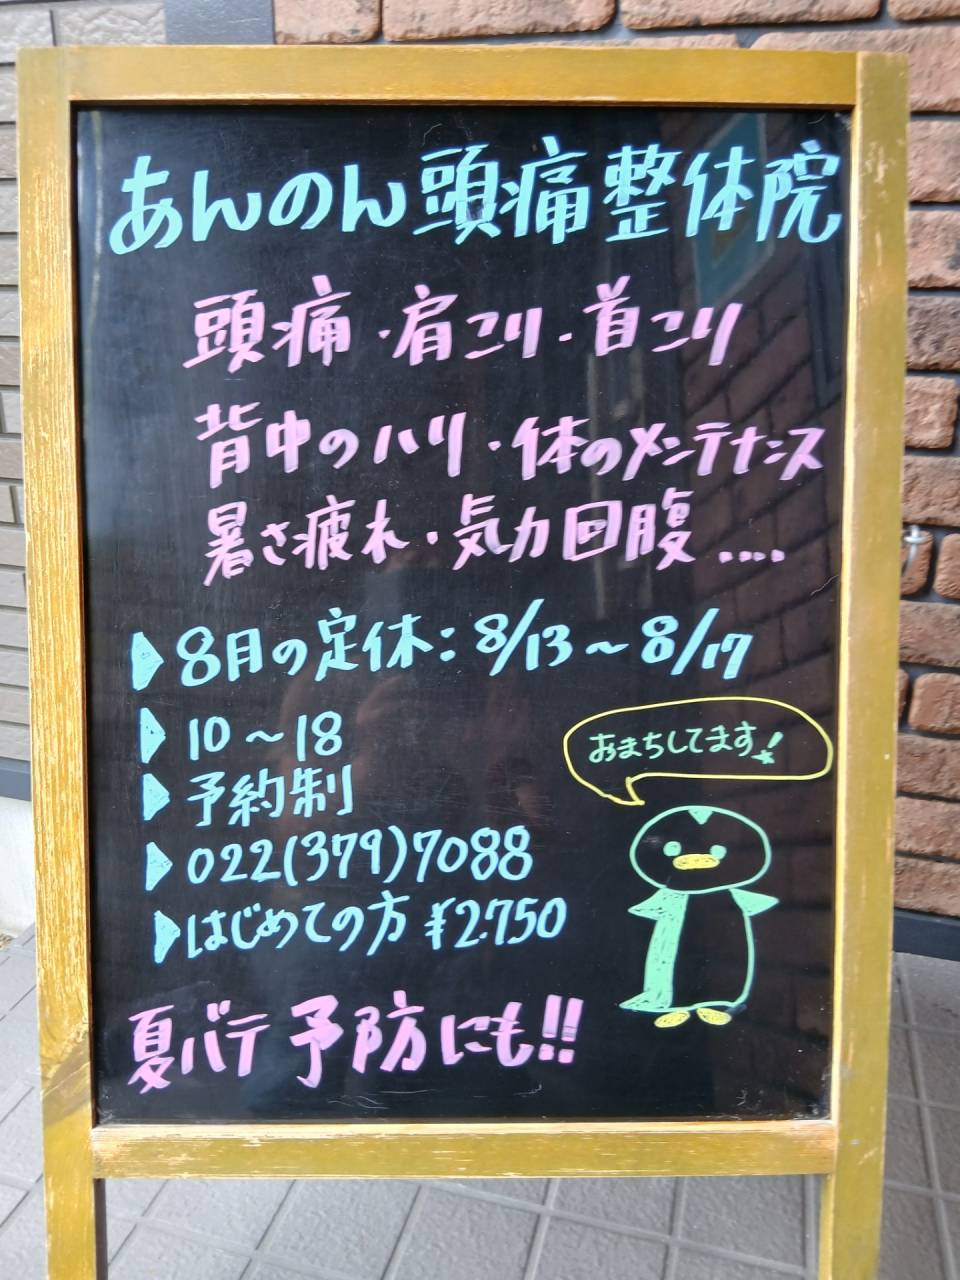 あんのん頭痛整体院
頭痛・肩こり・首こり
背中のハリ・体のメンテナンス
暑さ疲れ・気力回腹....
▶8月の定休:8/13～8/17
▶10～18
▶予約制
▶022(379)7088
▶はじめての方 ¥2.750
おまちしてます!
夏バテ予防にも!!